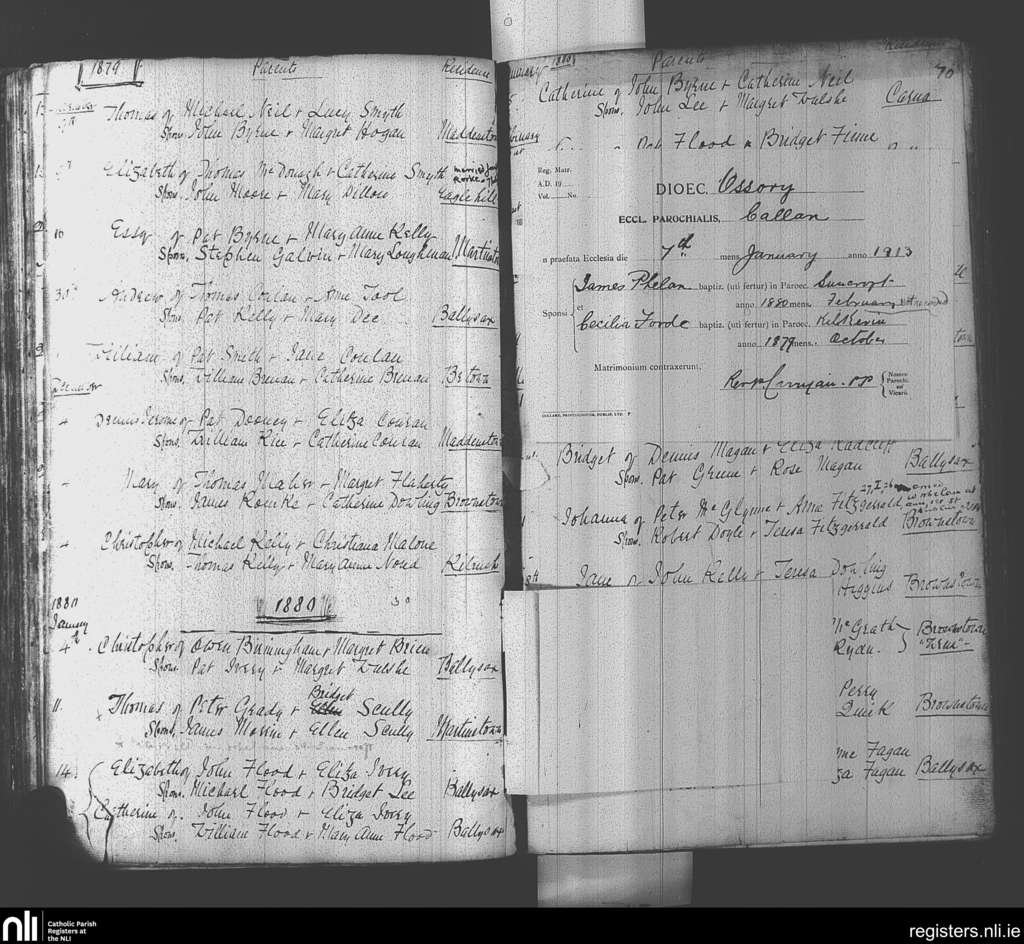 1879 Parents Residence
Thomas of Michael Neil + Lucy Smyth
Spons. John Byrne + Margret Hogan Maddenstown
Elizabeth of Thomas McDonagh + Catherine Smyth married
Spons. John Moore + Mary Dillon Eagle hill
10 Essy of Pat Byrne + Mary Anne Kelly
Spons. Stephen Galvin + Mary Loughman Martinstown
30 Andrew of Thomas Conlan + Anne Tool
Spons. Pat Kelly + Mary Dee Ballysax
William of Pat Smith + Jane Conlan
Spons. William Brenan + Catherine Brenan
Dennis Jerome of Pat Dooney + Eliza Conran
Spons. William Rice + Catherine Conlan Maddenstown
Mary of Thomas Maher + Margret Flaherty
Spons. James Rourke + Catherine Dowling Brownstown
Christopher of Michael Kelly + Christiana Malone
Spons. Thomas Kelly + Mary Anne Noud Kilrush
1880
1880
January
4th Christopher of Owen Birmingham + Margret Brien
Spons. Pat Ivery + Margret Walshe Ballysax
Bridget
11 Thomas of Peter Grady + Ellen Scully
Spons. James Morrin + Ellen Scully Martinstown
14 Elizabeth of John Flood + Eliza Ivory
Spons. Michael Flood + Bridget Lee Ballysax
Catherine of John Flood + Eliza Ivory
Spons. William Flood + Mary Anne Flood Ballysax
1880 Parents Residence
70
Catherine of John Byrne + Catherine Neil
Spons. John Lee + Margret Walshe Carna
Flood + Bridget Finne
Reg. Matr.
A.D. 19
Vol. No.
DIOEC. Ossory
ECCL. PAROCHIALIS, Callan
n praefata Ecclesia die 7th mens. January anno 1913
James Phelan baptiz. (uti fertur) in Paroec. Suncroft
anno 1880 mens. February
Sponsi et
Cecilia Forde baptiz. (uti fertur) in Paroec. Kilkevin
anno 1879 mens. October
Matrimonium contraxerunt.
Nomen Parochi vel Vicarii
Bridget of Dennis Magan + Eliza Radcliff
Spons. Pat Greene + Rose Magan Ballysax
Johanna of Peter McGlynne + Anne Fitzgerald
Spons. Robert Doyle + Teresa Fitzgerald Brownstown
Jane of John Kelly + Teresa Dowling
Higgins Brownstown
McGrath Brownstown
Ryan.
Perry
Quirk Brownstown
Fagan
Fagan Ballysax
nli Catholic Parish Registers at the NLI
registers.nli.ie